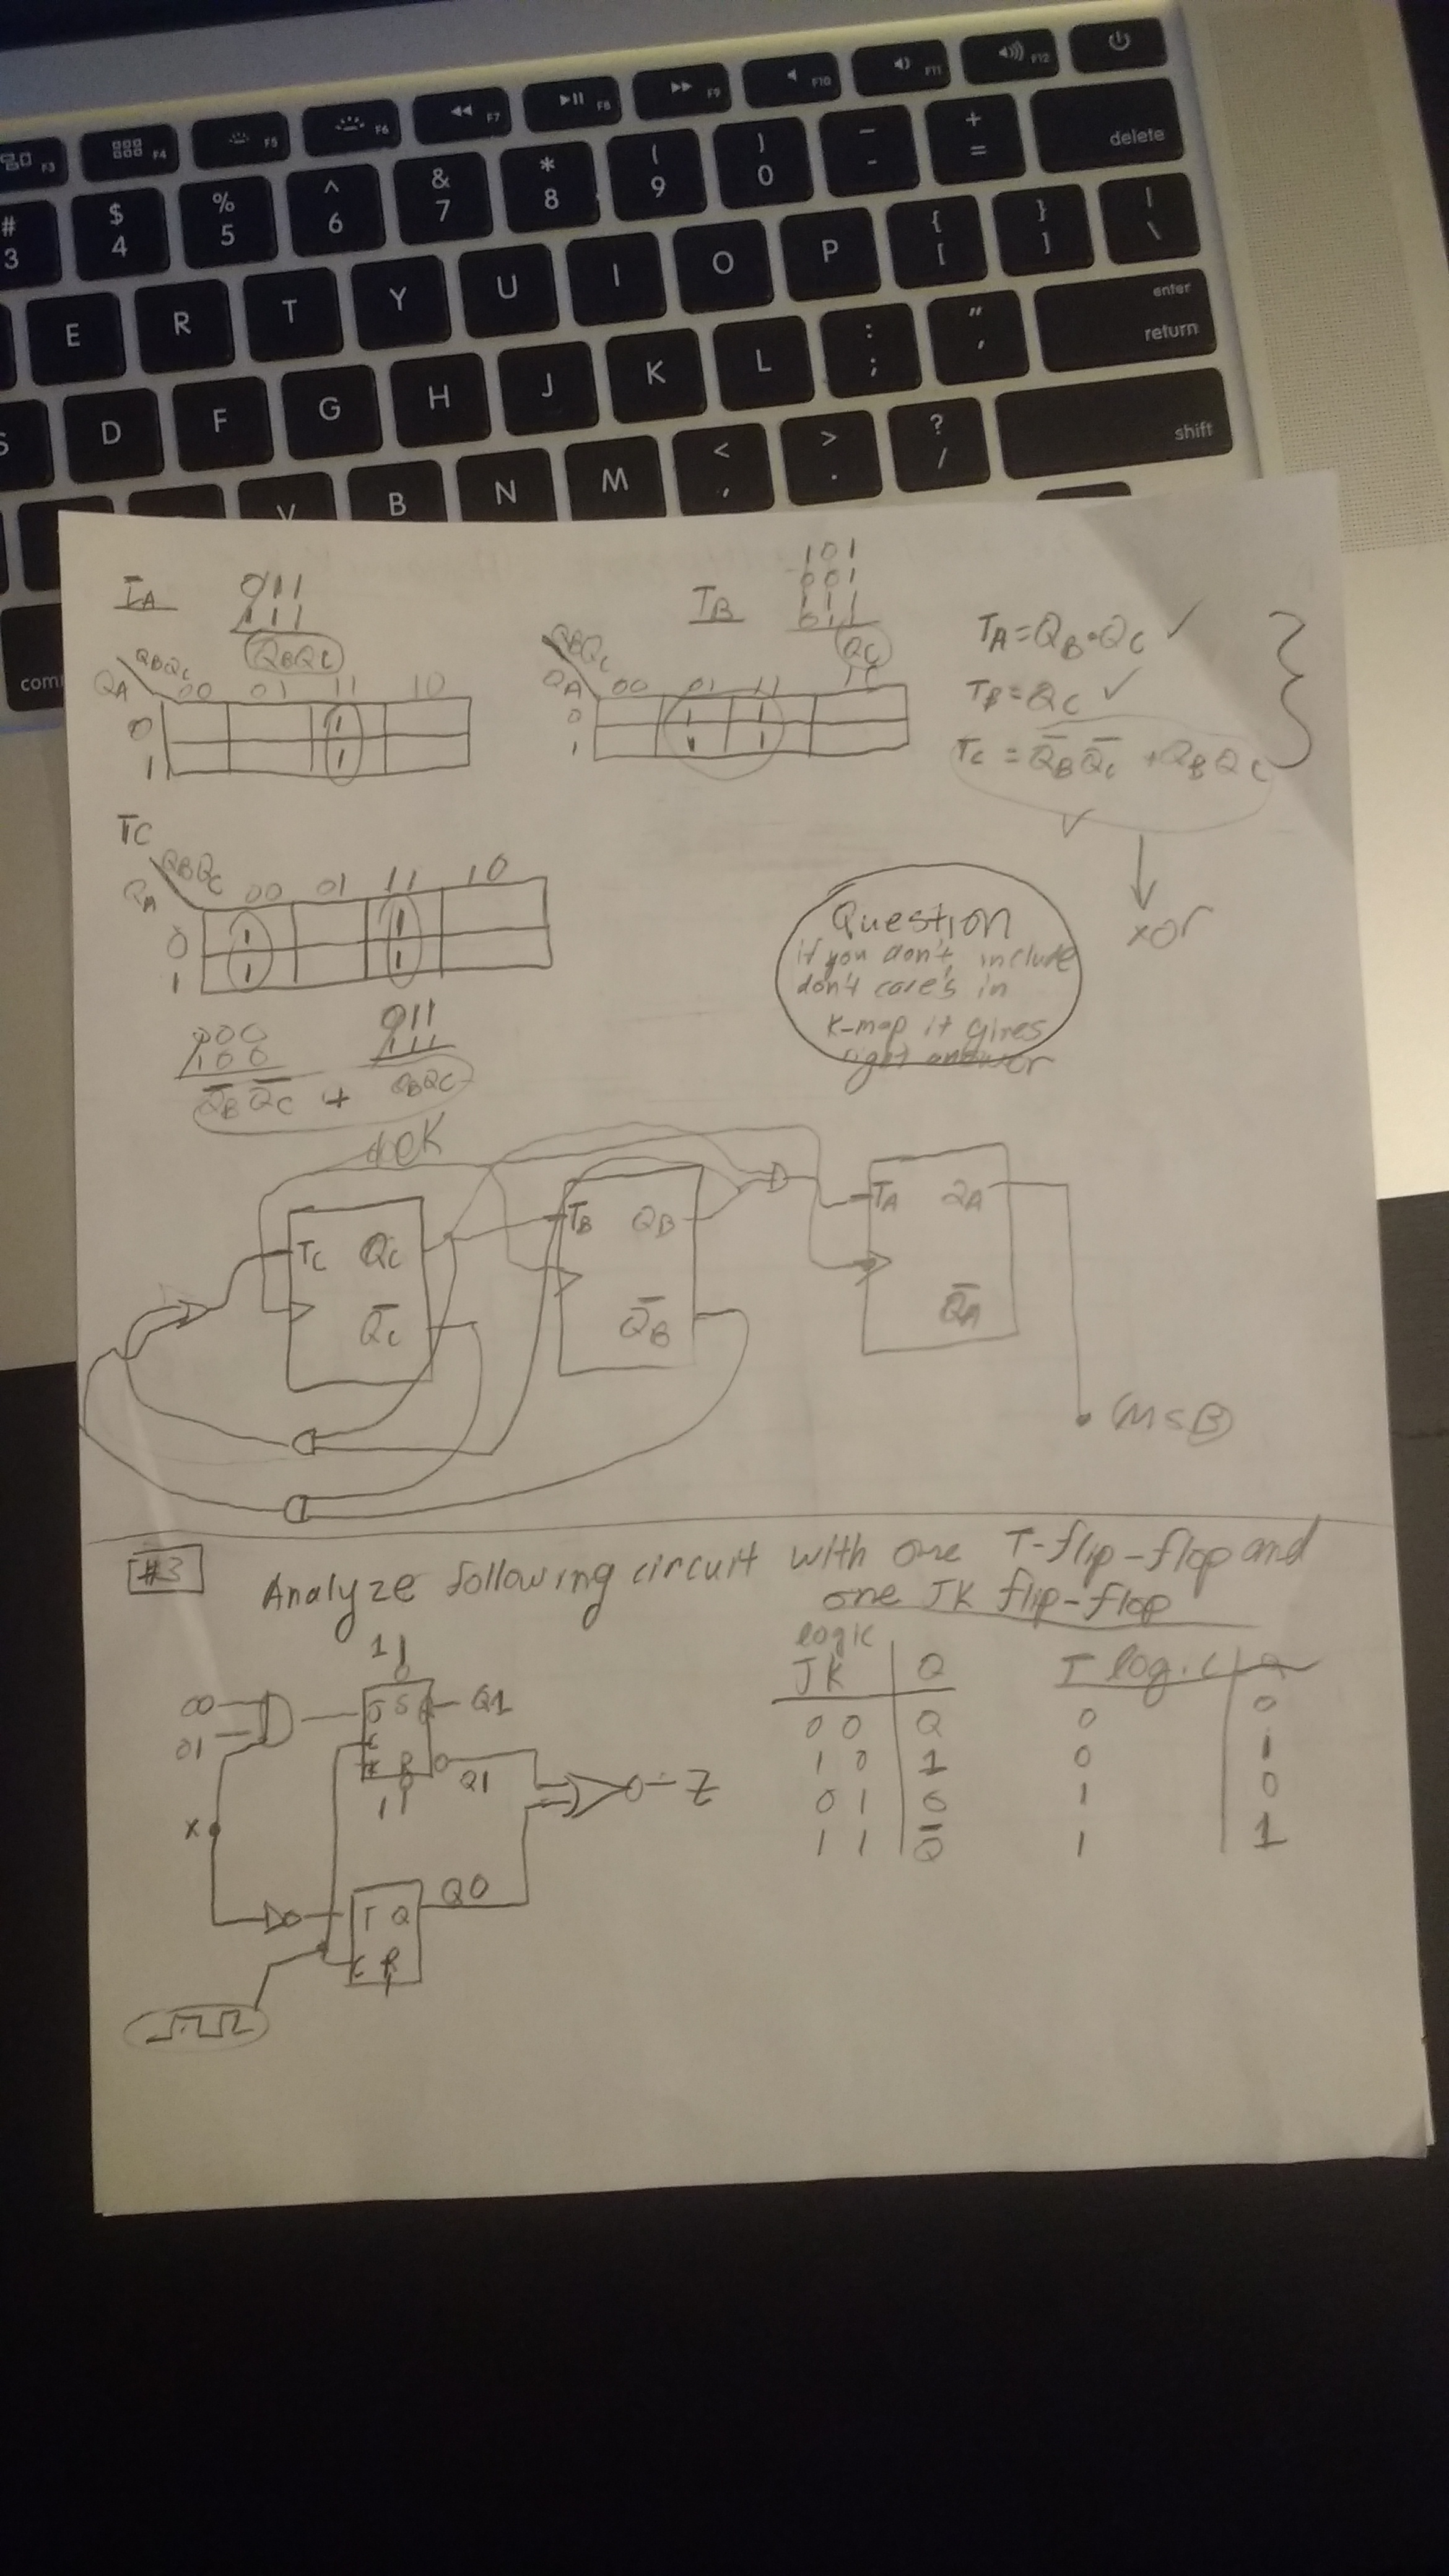 F3 F4 F5 F6 F7 F8 F9 F10 F11 F12
# 3 $ 4 % 5 ^ 6 & 7 * 8 ( 9 ) 0 _ - + = delete
E R T Y U I O P { [ } ] | \
D F G H J K L : ; " ' enter return
V B N M < , > . ? / shift
com
TA
011
111
QBQC
QBQC
QA 00 01 11 10
0 1
1 1
TB
101
001
111
011
QC
QBQC
QA 00 01 11 10
0 1 1
1 1 1
TA = QB•QC ✓
TB = QC ✓
TC = Q̅B Q̅C + QB QC
✓
xor
TC
QBQC
QA 00 01 11 10
0 1 1
1 1 1
000
100
Q̅B Q̅C +
011
111
QBQC
Question
if you don't include
don't care's in
K-map it gives
right answer
TC QC
Q̅C
TB QB
Q̅B
TA QA
Q̅A
(MSB)
#3
Analyze following circuit with one T-flip-flop and
one JK flip-flop
1
J S
C
K R
Q1
Q1
1
Z
X
T Q
C R
Q0
logic
JK Q
0 0 Q
1 0 1
0 1 0
1 1 Q̅
T logic Q
0 0
0 1
1 0
1 1